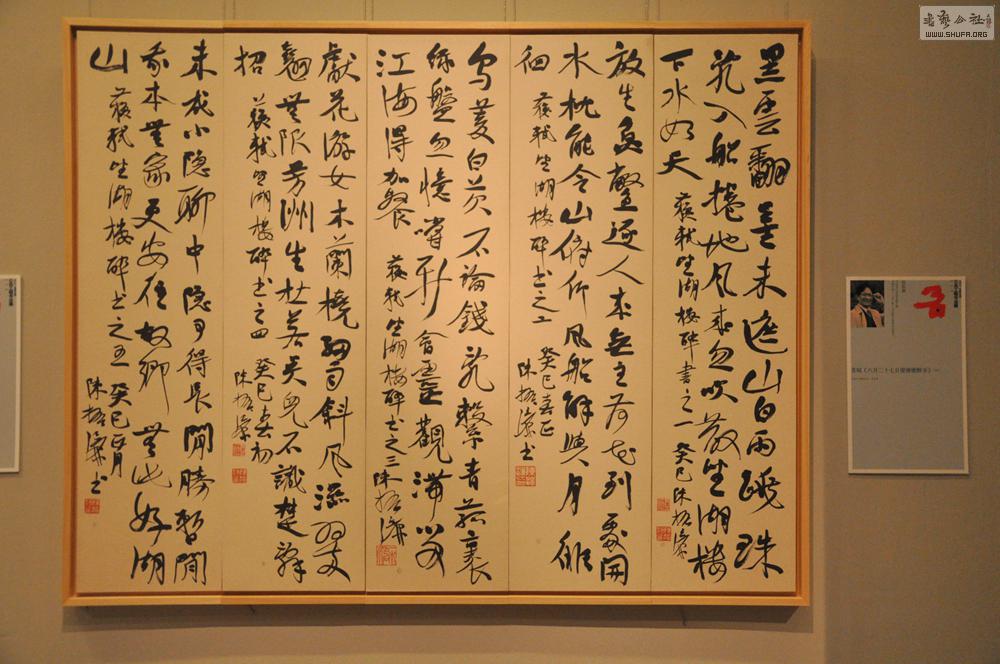 黑雲翻墨未遮山白雨跳珠
亂入船捲地風來忽吹散望湖樓
下水如天
蘇軾望湖樓醉書之一 癸巳陳振濂
放生魚鱉逐人來無主荷花到處開
水枕能令山俯仰風船解與月徘
徊
蘇軾望湖樓醉書之二
癸巳春正陳振濂書
烏菱白芡不論錢亂繫青菰裹
綠盤忽憶嘗新會靈觀滯留
江海得加餐
蘇軾望湖樓醉書之三陳振濂
獻花游女木蘭橈細雨斜風濕翠
翹無限芳洲生杜若吳兒不識楚辭
招
蘇軾望湖樓醉書之四 癸巳春初
陳振濂
未成小隱聊中隱可得長閒勝暫閒
我本無家更安往故鄉無此好湖
山
蘇軾望湖樓醉書之五 癸巳正月
陳振濂書
書藝公社
WWW.SHUFA.ORG